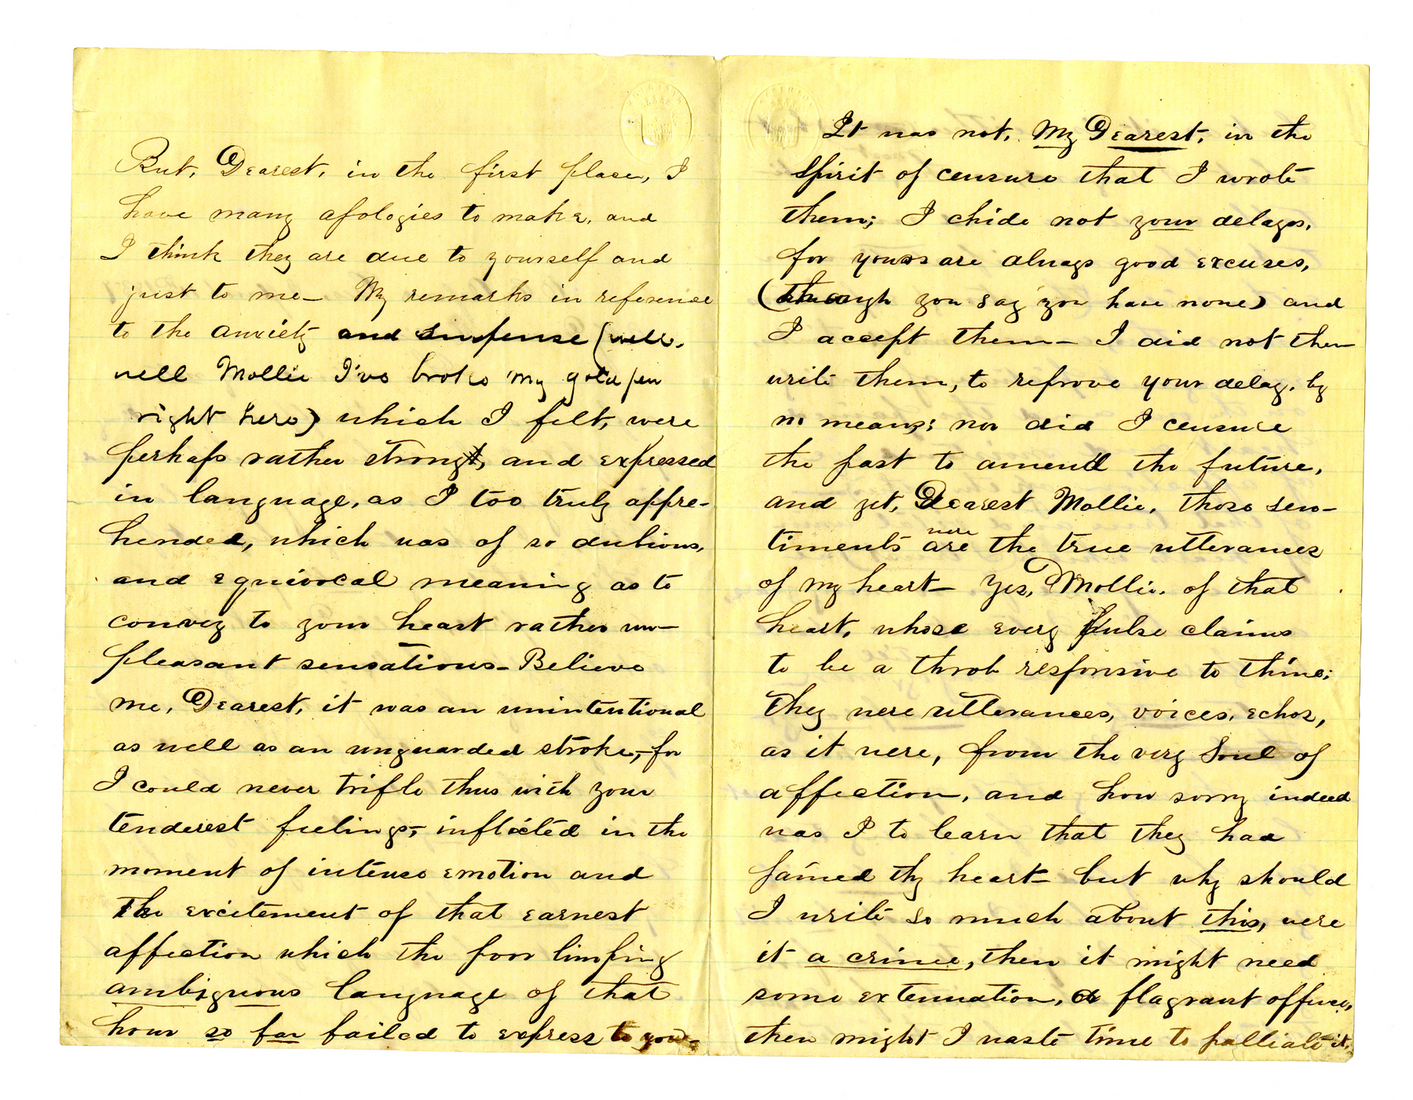 But, Dearest, in the first place, I
have many apologies to make, and
I think they are due to yourself and
just to me— My remarks in reference
to the anxiety and suspense (well,
well Mollie I've broke my gold pen
right here) which I felt, were
perhaps rather strong, and expressed
in language, as I too truly appre-
hended, which was of so dubious,
and equivocal meaning as to
convey to your heart rather un-
pleasant sensations— Believe
me, Dearest, it was an unintentional
as well as an unguarded stroke,—for
I could never trifle thus with your
tenderest feelings,— inflicted in the
moment of intense emotion and
the excitement of that earnest
affection which the poor limping
ambiguous language of that
hour so far failed to express to you—
It was not, My Dearest, in the
Spirit of censure that I wrote
them; I chide not your delays,
for yours are always good excuses,
(though you say you have none) and
I accept them— I did not then
write them, to reprove your delay, by
no means; nor did I censure
the past to amend the future,
and yet, Dearest Mollie, those sen-
timents are were the true utterances
of my heart— Yes, Mollie, of that
heart, whose every pulse claims
to be a throb responsive to thine;
They were utterances, voices, echos,
as it were, from the very Soul of
affection, and how sorry indeed
was I to learn that they had
pained thy heart— but why should
I write so much about this, were
it a crime, then it might need
some extenuation, a flagrant offence,
then might I waste time to palliate it,